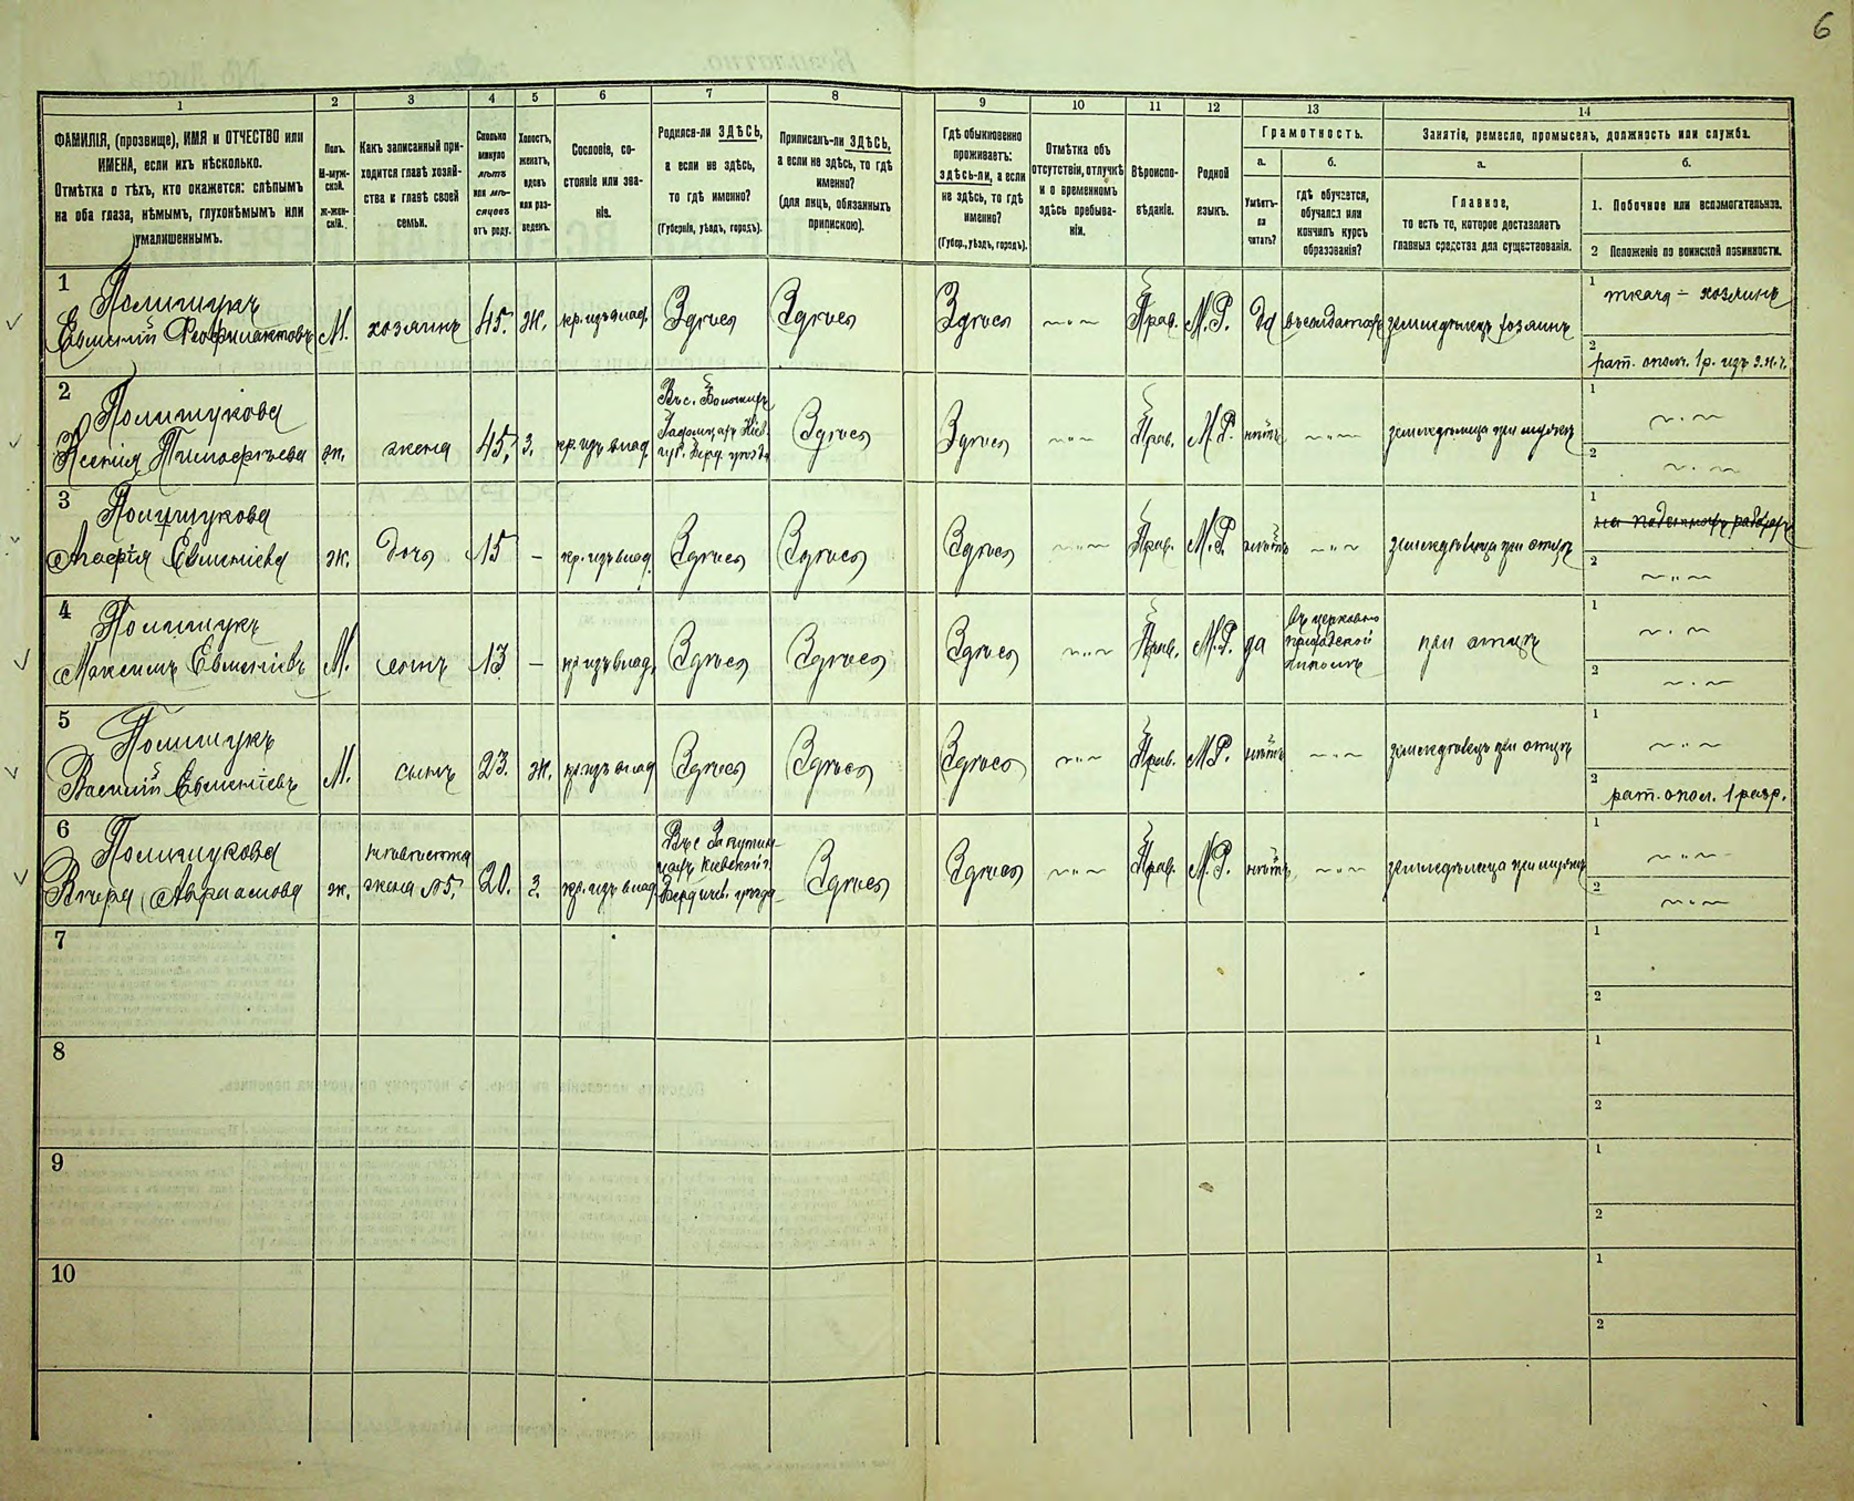 6
1 2 3 4 5 6 7 8 9 10 11 12 13 14
ФАМИЛІЯ, (прозвище), ИМЯ и ОТЧЕСТВО или
ИМЕНА, если ихъ нѣсколько.
Отмѣтка о тѣхъ, кто окажется: слѣпымъ
на оба глаза, нѣмымъ, глухонѣмымъ или
умалишеннымъ.
Полъ.
М-муж-
ской.
Ж-жен-
скій.
Какъ записанный при-
ходится главѣ хозяй-
ства и главѣ своей
семьи.
Сколько
минуло
лѣтъ
или мѣ-
сяцевъ
отъ роду.
Холостъ,
женатъ,
вдовъ
или раз-
веденъ.
Сословіе, со-
стояніе или зва-
ніе.
Родился-ли ЗДѢСЬ,
а если не здѣсь,
то гдѣ именно?
(Губернія, уѣздъ, городъ).
Приписанъ-ли ЗДѢСЬ,
а если не здѣсь, то гдѣ
именно?
(для лицъ, обязанныхъ
припискою).
Гдѣ обыкновенно
проживаетъ:
здѣсь-ли, а если
не здѣсь, то гдѣ
именно?
(Губер., уѣздъ, городъ).
Отмѣтка объ
отсутствіи, отлучкѣ
и о временномъ
здѣсь пребыва-
ніи.
Вѣроиспо-
вѣданіе.
Родной
языкъ.
Грамотность.
а.
Умѣетъ-
ли
читать?
б.
гдѣ обучается,
обучался или
кончилъ курсъ
образованія?
Занятіе, ремесло, промыселъ, должность или служба.
а.
Главное,
то есть то, которое доставляетъ
главныя средства для существованія.
б.
1. Побочное или вспомогательное.
2 Положеніе по воинской повинности.
1
Полищукъ
Евменій Феофилактовъ
М.
хозяинъ
45.
Ж.
кр. изъ влад.
Здѣсь
Здѣсь
Здѣсь
Прав.
М.Р.
да
въ солдатахъ
земледѣлецъ хозяинъ
1
ткачъ - хозяинъ
2
рат. опол. 1 р. изъ
2
Полищукова
Ксенія Тимофѣева
ж.
жена
45.
з.
кр. изъ влад.
Здѣсь
Здѣсь
Прав.
М.Р.
нѣтъ
земледѣлица при мужѣ
1
2
3
Полищукова
Евменіева
ж.
дочь
15
-
кр. изъ влад.
Здѣсь
Здѣсь
Здѣсь
Прав.
М.Р.
нѣтъ
земледѣлица при отцѣ
1
2
4
Полищукъ
Максимъ Евменіевъ
М.
сынъ
13
-
кр изъ влад.
Здѣсь
Здѣсь
Здѣсь
Прав.
М.Р.
да
въ церковно
приходской
школѣ
при отцѣ
1
2
5
Полищукъ
Василій Евменіевъ
М.
сынъ
23.
ж.
кр. изъ влад
Здѣсь
Здѣсь
Здѣсь
Прав.
М.Р.
нѣтъ
земледѣлецъ при отцѣ
1
2
рат. опол. 1 разр.
6
Полищукова
Вѣра Авраамова
ж.
невѣстка
жена №5.
20.
з.
кр. изъ влад.
Кіевской г.
Бердичев. уѣзда
Здѣсь
Здѣсь
Прав.
М.Р.
нѣтъ
земледѣлица при мужѣ
1
2
7
1
2
8
1
2
9
1
2
10
1
2